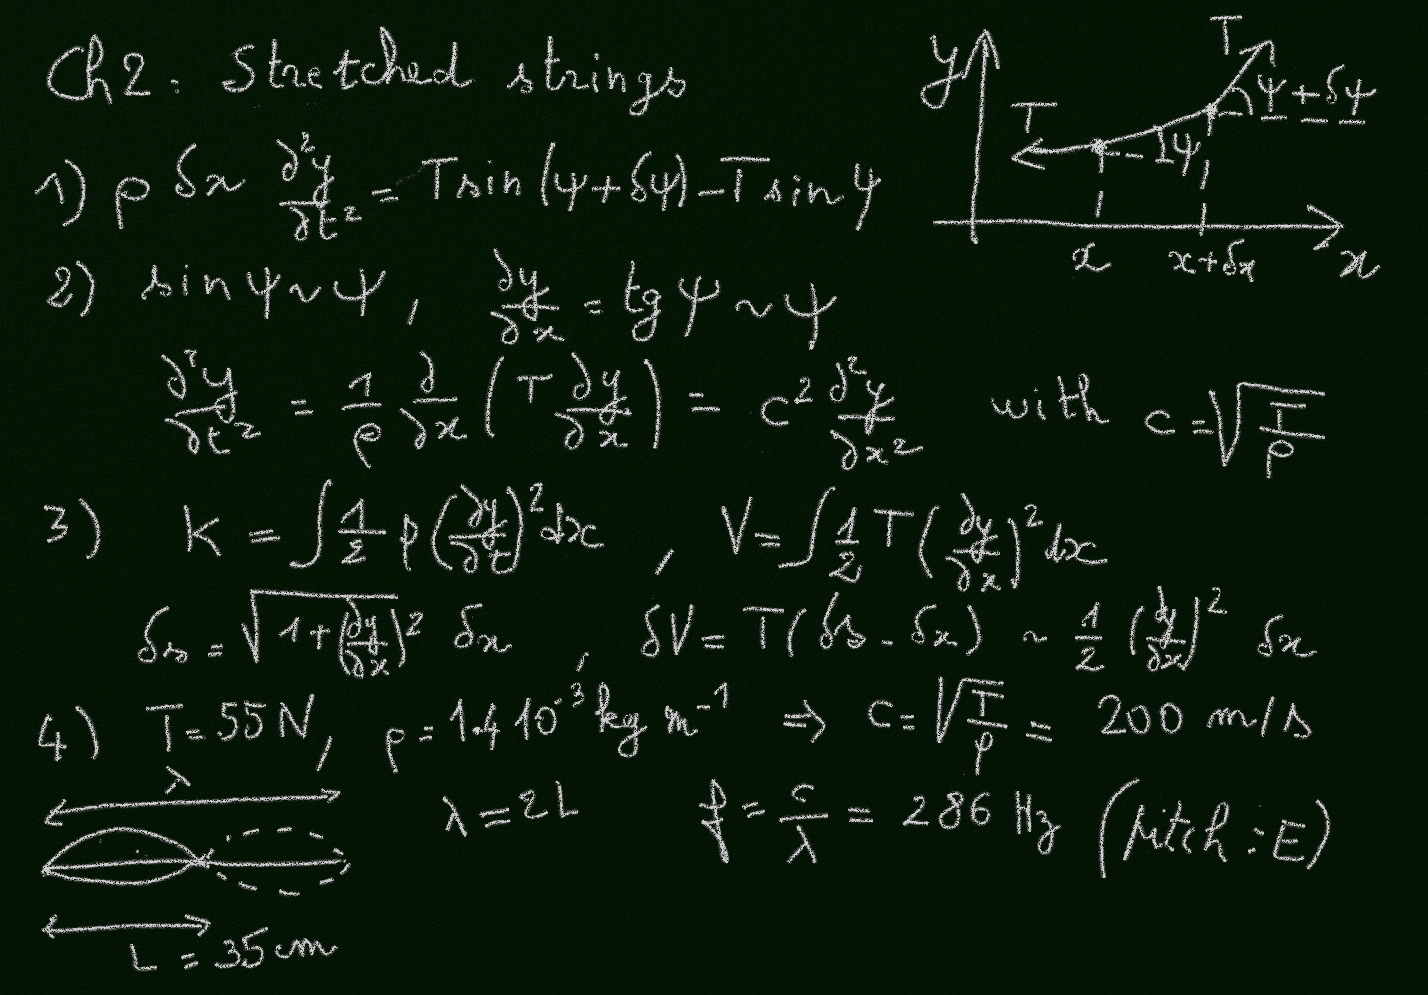 Ch2: Stretched strings
y T ψ+δψ
T ψ
x x+δx x
1) ρ δx ∂²y/∂t² = T sin(ψ+δψ) - T sin ψ
2) sin ψ ~ ψ, ∂y/∂x = tg ψ ~ ψ
∂²y/∂t² = 1/ρ ∂/∂x (T ∂y/∂x) = c² ∂²y/∂x² with c = √(T/ρ)
3) K = ∫ 1/2 ρ (∂y/∂t)² dx, V = ∫ 1/2 T (∂y/∂x)² dx
δs = √(1+(∂y/∂x)²) δx, δV = T(δs - δx) ~ 1/2 (∂y/∂x)² δx
4) T = 55 N, ρ = 1.4 10⁻³ kg m⁻¹ ⇒ c = √(T/ρ) = 200 m/s
λ
λ = 2L f = c/λ = 286 Hz (pitch: E)
L = 35 cm